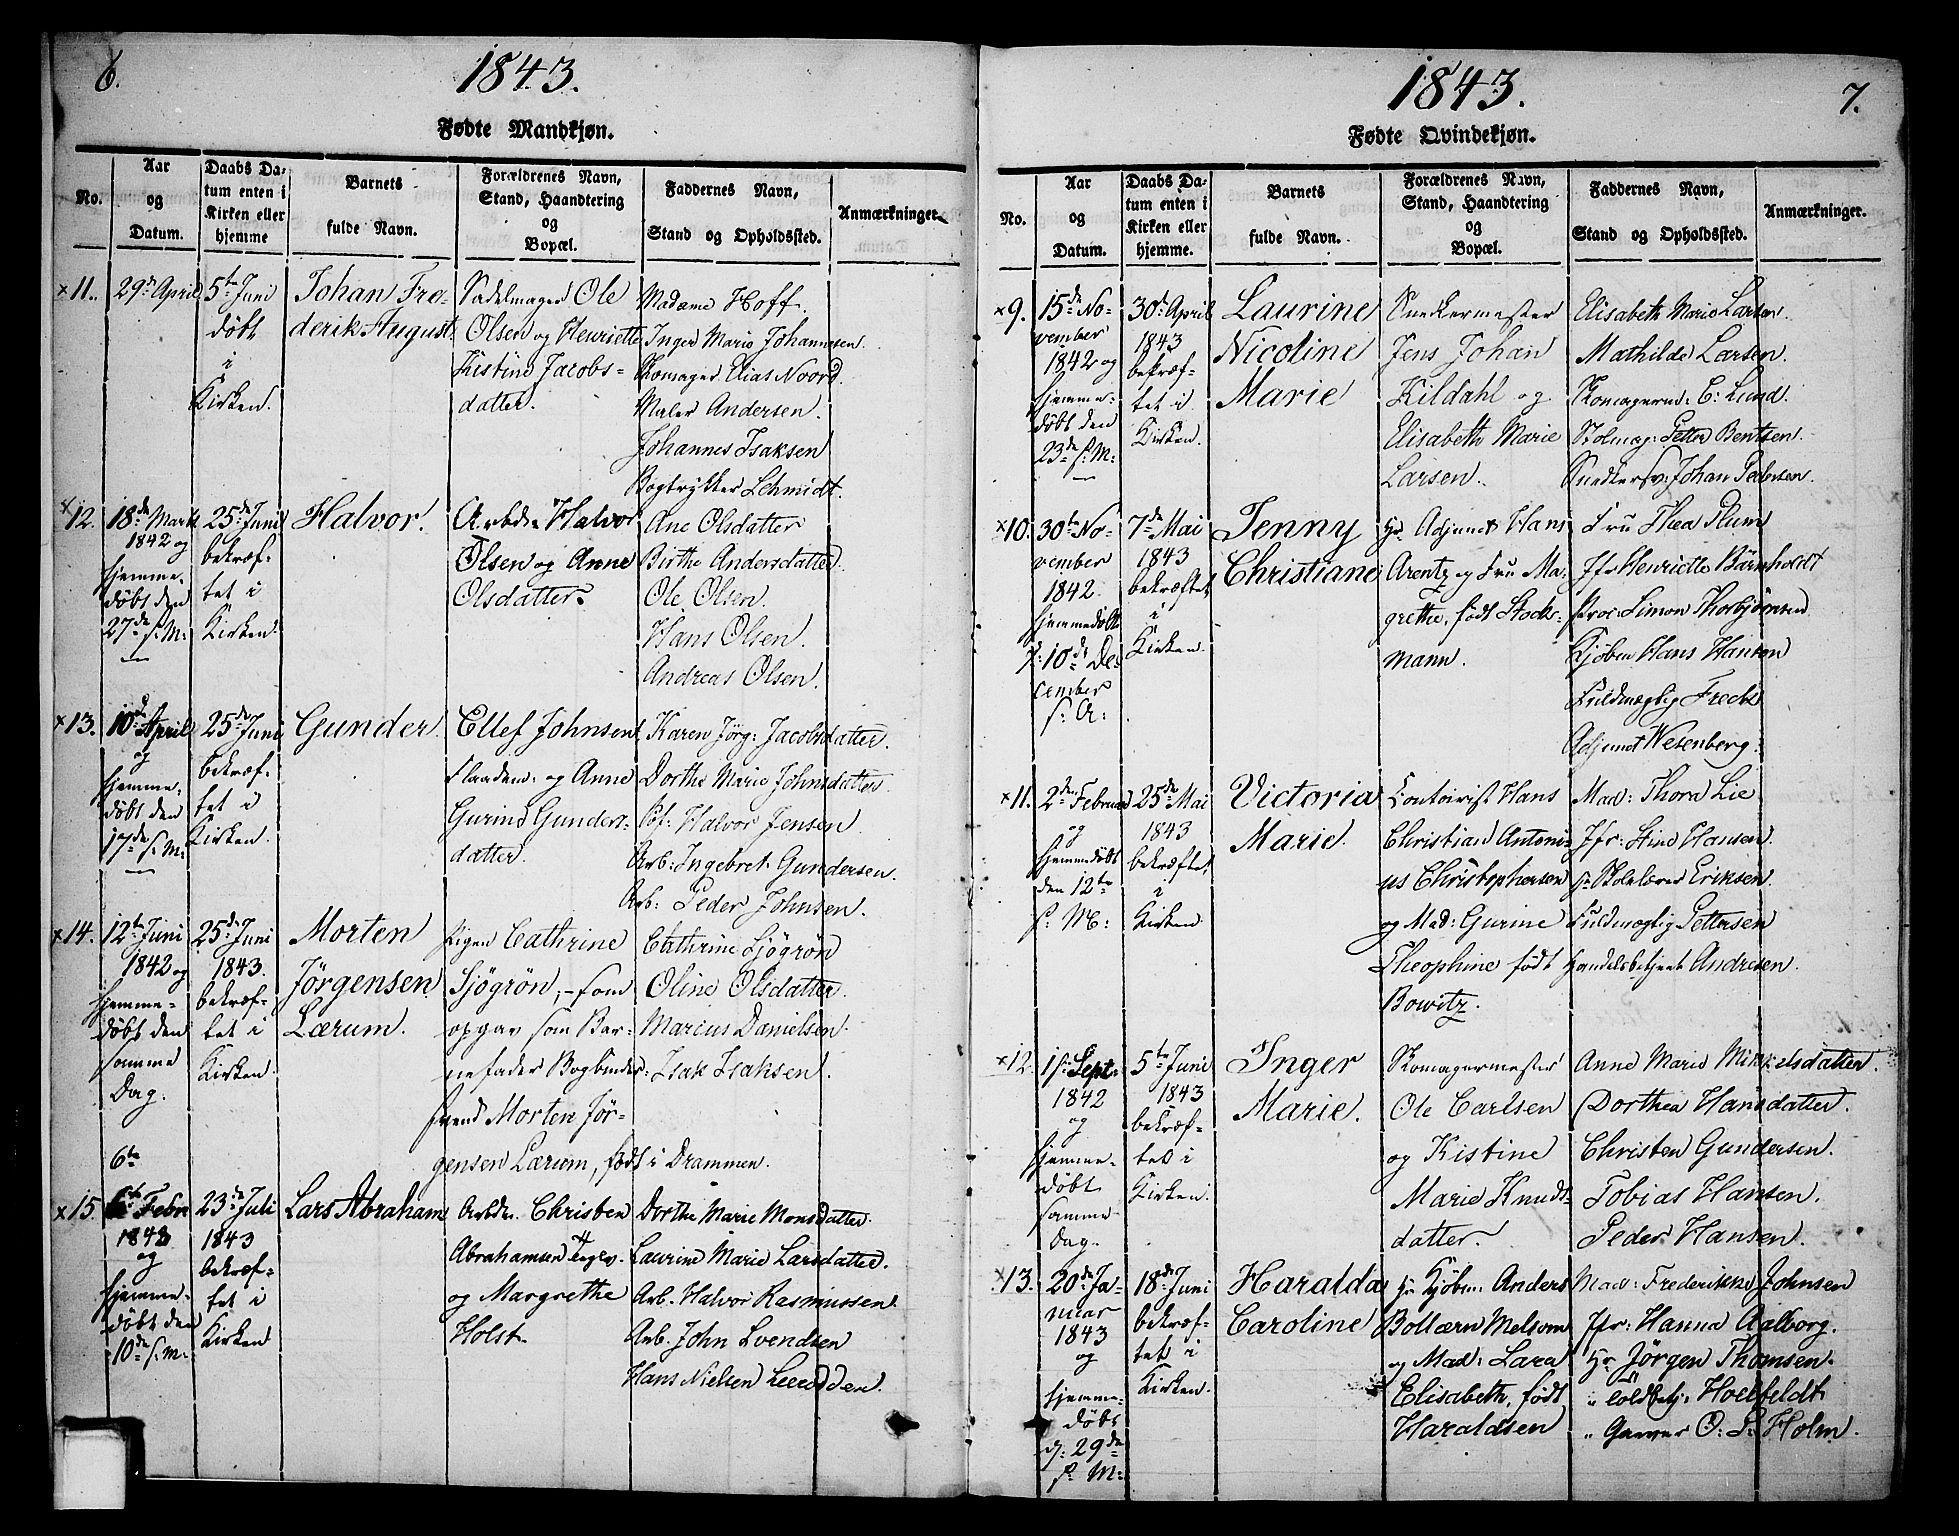 6.
1843.
Fødte Mandkjøn.
No.
Aar
og
Datum.
Daabs Da-
tum enten i
Kirken eller
hjemme
Barnets
fulde Navn.
Forældrenes Navn,
Stand, Haandtering
og
Bopæl.
Faddernes Navn,
Stand og Opholdssted.
Anmærkninger.
×11.
29de April
5te Juni
døbt
i
Kirken.
Johan Fre-
derik August
Sadelmager Ole
Olsen og Henriette
Kistine Jacobs-
datter.
Madame Hoff.
Inger Marie Johannesen.
Skomager Elias Noord.
Maler Andersen.
Johannes Isaksen
Bogtrykker Schmidt.
×12.
18de Marts
1842 og
hjemme-
døbt den
27de s: M:
25de Juni
bekræf-
tet i
Kirken.
Halvor.
Arbdr. Halvor
Olsen og Anne
Olsdatter.
Ane Olsdatter
Birthe Andersdatter.
Ole Olsen.
Hans Olsen.
Andreas Olsen.
×13.
10de April
og
hjemme-
døbt den
17de s: M:
25de Juni
bekræf-
tet i
Kirken.
Gunder.
Ellef Johnsen
og Anne
Gurine Gunders-
datter.
Karen Jørg: Jacobsdatter.
Dorthe Marie Johnsdatter
Halvor Jensen
Arb: Ingebret Gundersen.
Arb: Peder Johnsen.
×14.
12te Juni
1842 og
hjemme-
døbt den
samme
Dag.
25de Juni
1843.
bekræf-
tet i
Kirken.
Morten
Jørgensen
Lærum.
Pigen Cathrine
Sjøgrøn, - som
opgav som Bar-
nefader Bogbinder-
svend Morten Jør-
gensen Lærum, født i Drammen.
Cathrine Sjøgrøn
Oline Olsdatter.
Marcus Danielsen.
Isak Isaksen.
×15.
6te
6te Febr
1843
og
hjemme-
døbt den
10de s: M:
23de Juli
1843
bekræf-
tet i
Kirken
Lars Abraham
Arbdr. Christen
Abrahamsen
og Margrethe
Holst.
Dorthe Marie Monsdatter.
Laurine Marie Larsdatter.
Arb. Halvor Rasmussen.
Arb. John Svendsen
Hans Nielsen
7.
1843.
Fødte Qvindekjøn.
No.
Aar
og
Datum.
Daabs Da-
tum enten i
Kirken eller
hjemme.
Barnets
fulde Navn.
Forældrenes Navn,
Stand, Haandtering
og
Bopæl.
Faddernes Navn,
Stand og Opholdssted.
Anmærkninger.
×9.
15de No-
vember
1842 og
hjemme-
døbt den
23de s: M:
30de April
1843
bekræf-
tet i
Kirken.
Laurine
Nicoline
Marie
Snedkermester
Jens Johan
Kildahl og
Elisabeth Marie
Larsen.
Elisabeth Marie Larsen.
Mathilde Larsen.
Skomagersv: C: Lund.
Stolmag: Petter Bentsen.
Snedkersv: Johan Pedersen.
×10.
30te No-
vember
1842.
hjemmedøbt
d: 10de De-
cember
s: A:
7de Mai
1843
bekræftet
i
Kirken.
Jenny
Christiane
Hr Adjunct Hans
Arentz og Fru Ma-
grethe, født Stock-
mann.
Fru Thea Plum
Jfr Henriette Bärnholdt
Proc: Simon Thorbjørnsen
Kjøbm Hans Hansen
Fuldmægtig Frecks
Adjunct Wesenberg.
×11.
2den Februar
og
hjemmedøbt
den 12te
s: M:
25de Mai
1843
bekræftet
i
Kirken
Victoria
Marie.
Contoirist Hans
Christian Antoni-
us Christophersen
og Mad: Gurine
Theophine født
Bowitz.
Mad: Thora Lie
Jfr: Stine Hansen.
Hr Skolelærer Eriksen.
Fuldmægtig Pettersen
Handelsbetjent Andresen.
×12.
1ste Sept:
1842
og
hjemme-
døbt
samme
Dag.
5te Juni
1843
bekræf-
tet i
Kirken.
Inger
Marie.
Skomagermester
Ole Carlsen
og Kistine
Marie Knuds-
datter.
Anne Marie Mikkelsdatter.
Dorthea Hansdatter.
Christen Gundersen.
Tobias Hansen.
Peder Hansen.
×13.
20de Ja-
nuar
1843
og
hjemme-
døbt
d: 29de
s: M:
18de Juni
bekræf-
tet i
Kirken.
Haralda
Caroline
Hr Kjøbm: Anders
Bollærn Melsom
og Mad: Lara
Elisabeth, født
Haraldsen
Mad: Frederikke Johnsen
Jfr: Hanna Aalborg.
Hr Jørgen Thomsen.
" Toldbetj: Hoelfeldt
" Garver O: P: Holm.